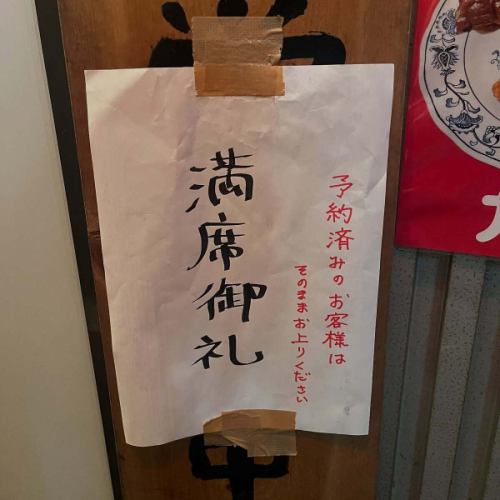 予約済みのお客様は
そのままお上りください
満席御礼
中